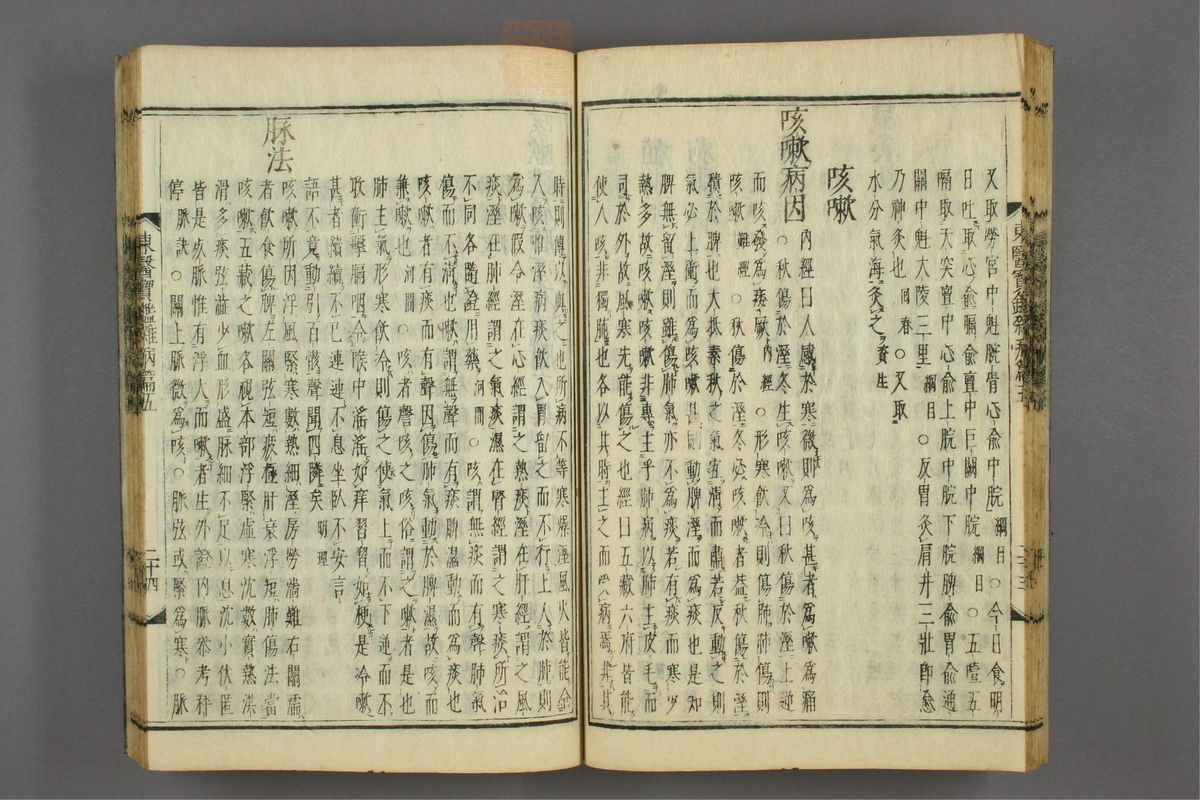 又取勞宮中魁腕骨心俞中脘綱目○今日食明
日吐取心俞膈俞膻中巨闕中脘綱目○五噎五
膈取天突膻中心俞上脘中脘下脘脾俞胃俞通
關中魁大陵三里綱目○反胃灸肩井三壯即愈
乃神灸也回春○又取
水分氣海灸之資生
咳嗽
咳嗽病因
內經曰人感於寒微則為咳甚者為嗽為痛
○秋傷於溼冬生咳嗽又曰秋傷於溼上逆
而咳發為痿厥內經○形寒飲冷則傷肺肺傷則
咳嗽難經○秋傷於溼冬必咳嗽者蓋秋傷於溼
積於脾也大抵素秋之氣宜清而肅若反動之則
氣必上衝而為咳嗽甚則動脾溼而為痰也是知
脾無留溼則雖傷肺氣亦不為痰若有痰而寒少
熱多故咳嗽咳嗽非專主乎肺病以肺主皮毛而
司於外故風寒先能傷之也經曰五藏六府皆能
使人咳非獨肺也各以其時主之而受病焉非其
時則傳以與之也所病不等寒燥溼風火皆能令
人咳惟溼病痰飲入胃留之而不行上入於肺則
為嗽假令溼在心經謂之熱痰溼在肝經謂之風
痰溼在肺經謂之氣痰濕在腎經謂之寒痰所治
不同各隨證用藥河間○咳謂無痰而有聲肺氣
傷而不清也嗽謂無聲而有痰脾溼動而為痰也
咳嗽者有痰而有聲因傷肺氣動於脾濕故咳而
兼嗽也河間○咳者聲咳之咳俗謂之嗽者是也
肺主氣形寒飲冷則傷之使氣上而不下逆而不
收衝擊膈咽令喉中淫淫如痒習習如梗是冷嗽
甚者續續不已連連不息坐臥不安言
語不竟動引百骸聲聞四隣矣明理
脉法
咳嗽所因浮風緊寒數熱細溼房勞濇難右關濡
者飲食傷脾左關弦短疲極肝衰浮短肺傷法當
咳嗽五藏之嗽各視本部浮緊虛寒沈數實熱洪
滑多痰弦濇少血形盛脉細不足以息沈小伏匿
皆是危脈惟有浮大而嗽者生外證內脈參考稱
停脉訣○關上脈微為咳○脈弦或緊為寒○脈
東醫寶鑑雜病篇五
二十四